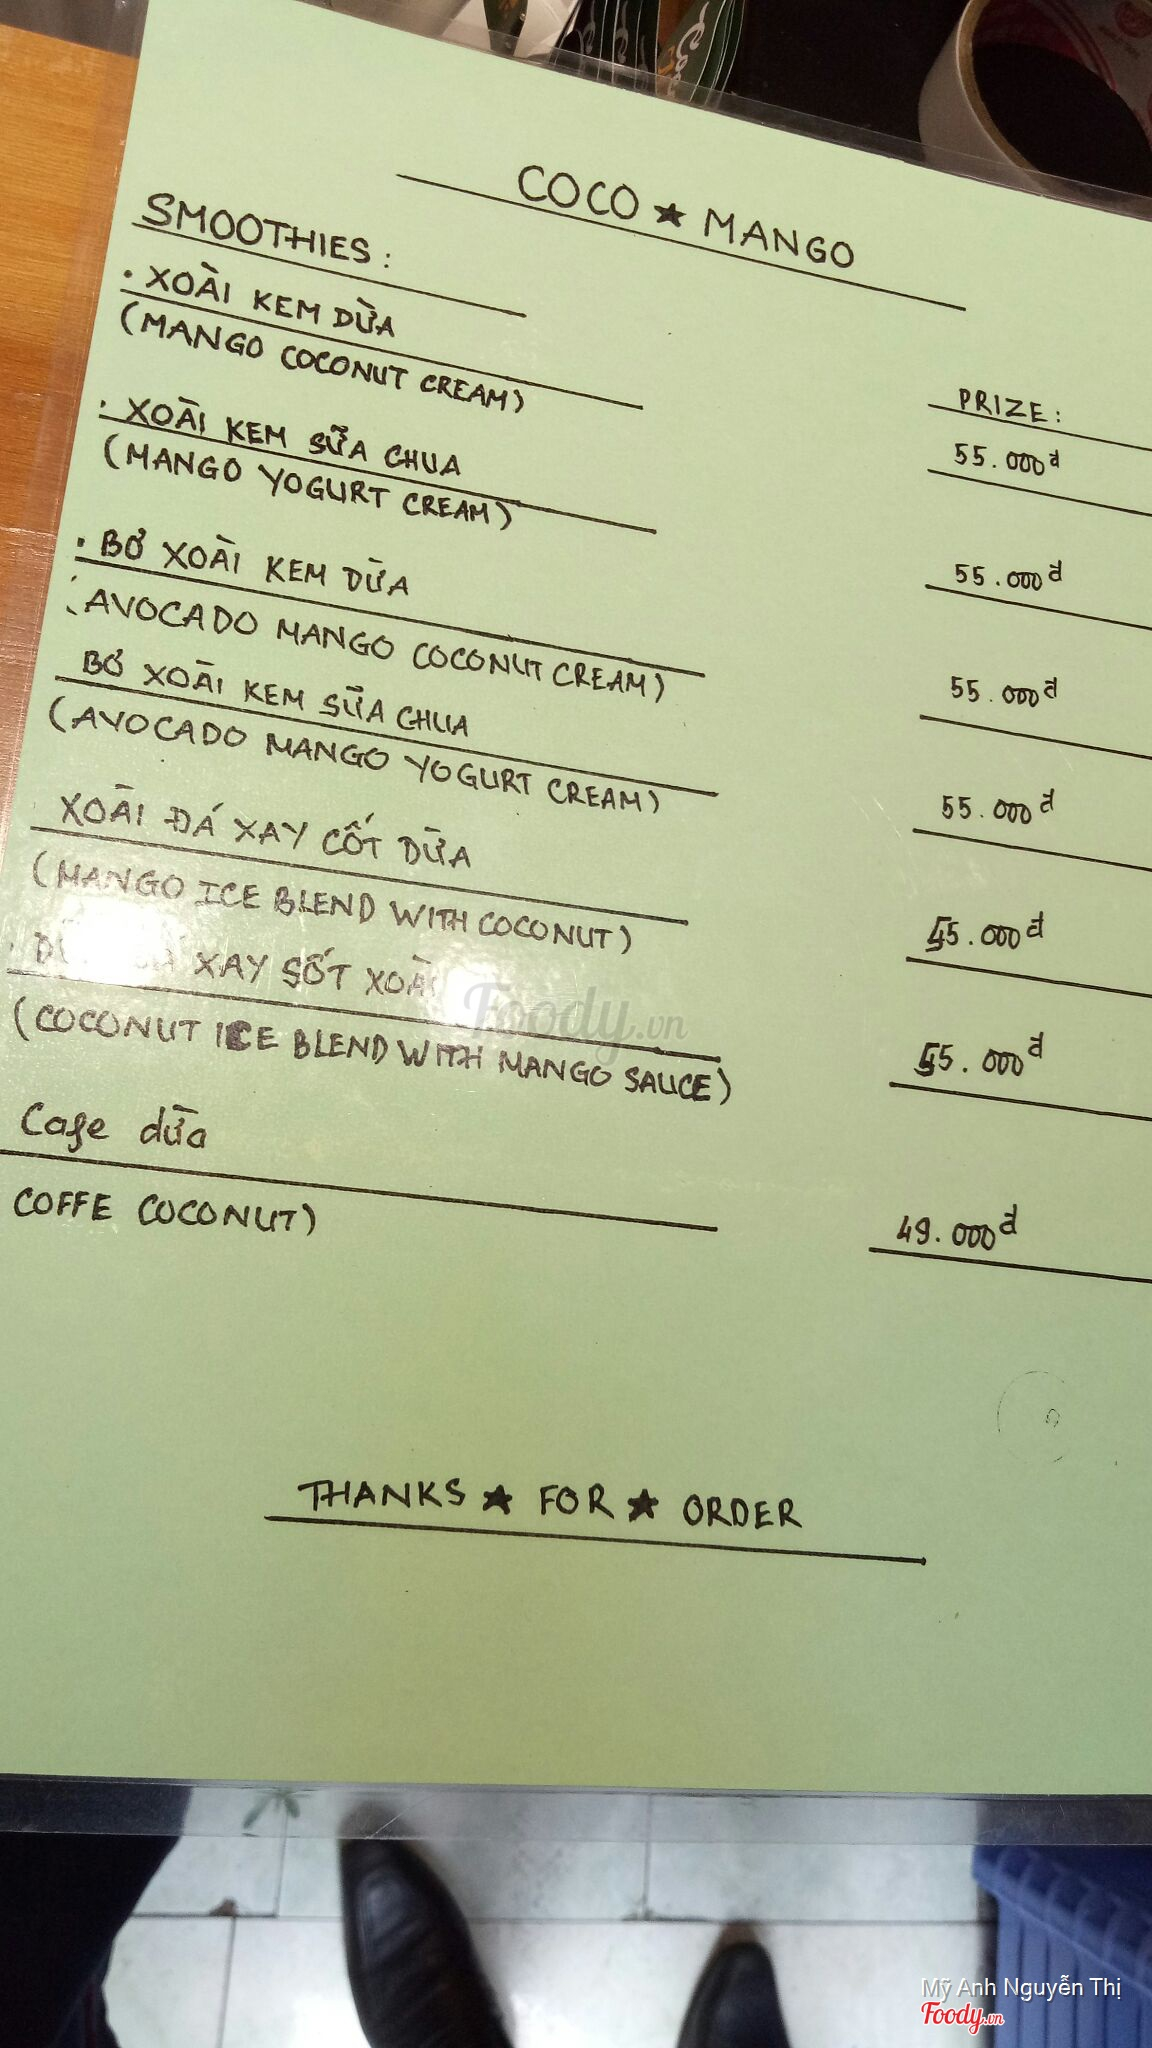 COCO ★ MANGO
SMOOTHIES:
PRIZE:
• XOÀI KEM DỪA
(MANGO COCONUT CREAM)
55.000đ
• XOÀI KEM SỮA CHUA
(MANGO YOGURT CREAM)
55.000đ
• BƠ XOÀI KEM DỪA
(AVOCADO MANGO COCONUT CREAM)
55.000đ
BƠ XOÀI KEM SỮA CHUA
(AVOCADO MANGO YOGURT CREAM)
55.000đ
XOÀI ĐÁ XAY CỐT DỪA
(MANGO ICE BLEND WITH COCONUT)
55.000đ
XAY SỐT XOÀI
(COCONUT ICE BLEND WITH MANGO SAUCE)
55.000đ
Cafe dừa
COFFE COCONUT)
49.000đ
THANKS ★ FOR ★ ORDER
Foody.vn
Mỹ Anh Nguyễn Thị
Foody.vn